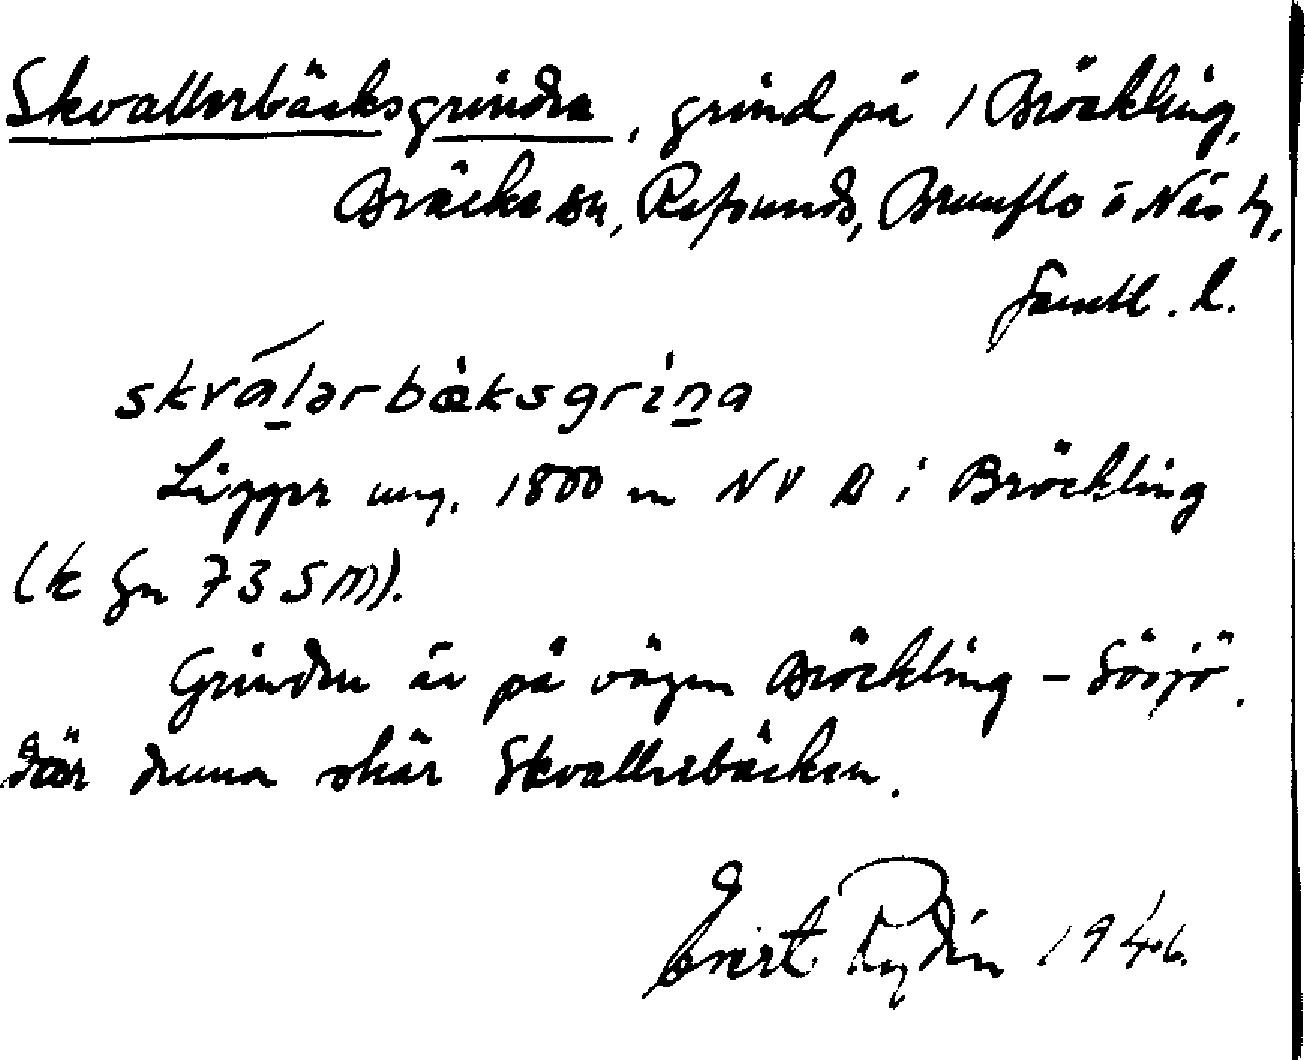 Skvallerbäcksgrinden, grind på 1 Bröckling,
Bräcke sn, Refsunds, Brunflo o Näs tg,
Jämtl. l.
skválərbæksgrina
Ligger ung. 1800 m NV A i Bröckling
(k Gn 73 SM).
Grinden är på vägen Bröckling – Sösjö.
där denna skär Skvallerbäcken.
Evert Rydén 1946.